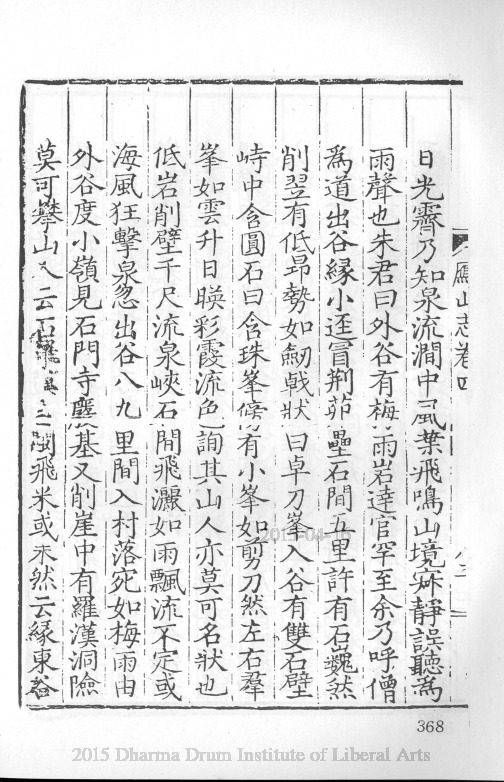 鴈山志卷四
日光霽乃知泉流澗中風葉飛鳴山境寂靜誤聽為
雨聲也朱君曰外谷有梅雨岩達官罕至余乃呼僧
為道出谷緣小逕冒荊茆壘石間五里許有石巍然
削翌有低昻勢如劒戟狀曰卓刀峯入谷有雙石壁
峙中含圓石曰含珠峯傍有小峯如剪刀然左右羣
峯如雲升日暎彩霞流色詢其山人亦莫可名狀也
低岩削壁千尺流泉峽石間飛灑如雨飄流不定或
海風狂擊泉忽出谷八九里間入村落宛如梅雨由
外谷度小嶺見石門寺廢基又削崖中有羅漢洞險
莫可攀山人云石飛米或未然云緣東谷
368
2011-04-1
2015 Dharma Drum Institute of Liberal Arts